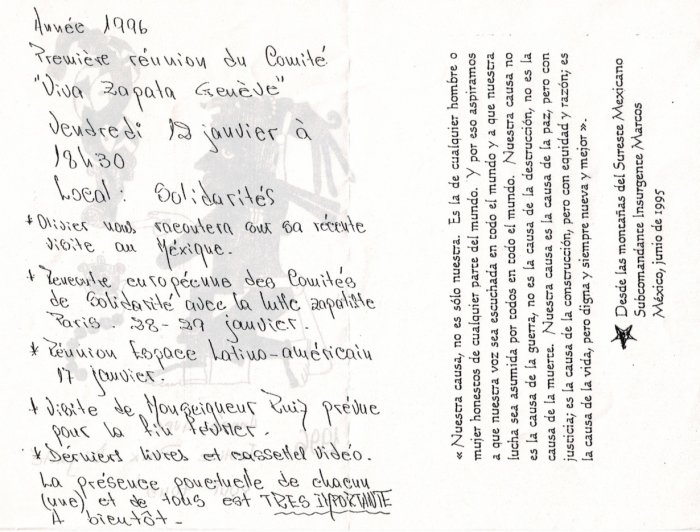 Année 1996
Première réunion du Comité
"Viva Zapata Genève"
Vendredi 12 janvier à
18h30
Local : Solidarités
* Olivier nous racontera sur sa récente
visite au Méxique.
* Rencontre européenne des Comités
de Solidarité avec la lutte zapatiste
Paris. 28-29 janvier.
* Réunion Espace Latino-américain
17 janvier.
* Visite de Monseigneur Ruiz prévue
pour la fin février.
* Dérniers livres et cassettes vidéo.
La présence ponctuelle de chacun
(une) et de tous est TRES IMPORTANTE
A bientôt -
« Nuestra causa, no es sólo nuestra. Es la de cualquier hombre o
mujer honestos de cualquier parte del mundo. Y por eso aspiramos
a que nuestra voz sea escuchada en todo el mundo y a que nuestra
lucha sea asumida por todos en todo el mundo. Nuestra causa no
es la causa de la guerra, no es la causa de la destrucción, no es la
causa de la muerte. Nuestra causa es la causa de la paz, pero con
justicia; es la causa de la construcción, pero con equidad y razón; es
la causa de la vida, pero digna y siempre nueva y mejor ».
Desde las montañas del Sureste Mexicano
Subcomandante Insurgente Marcos
México, junio de 1995